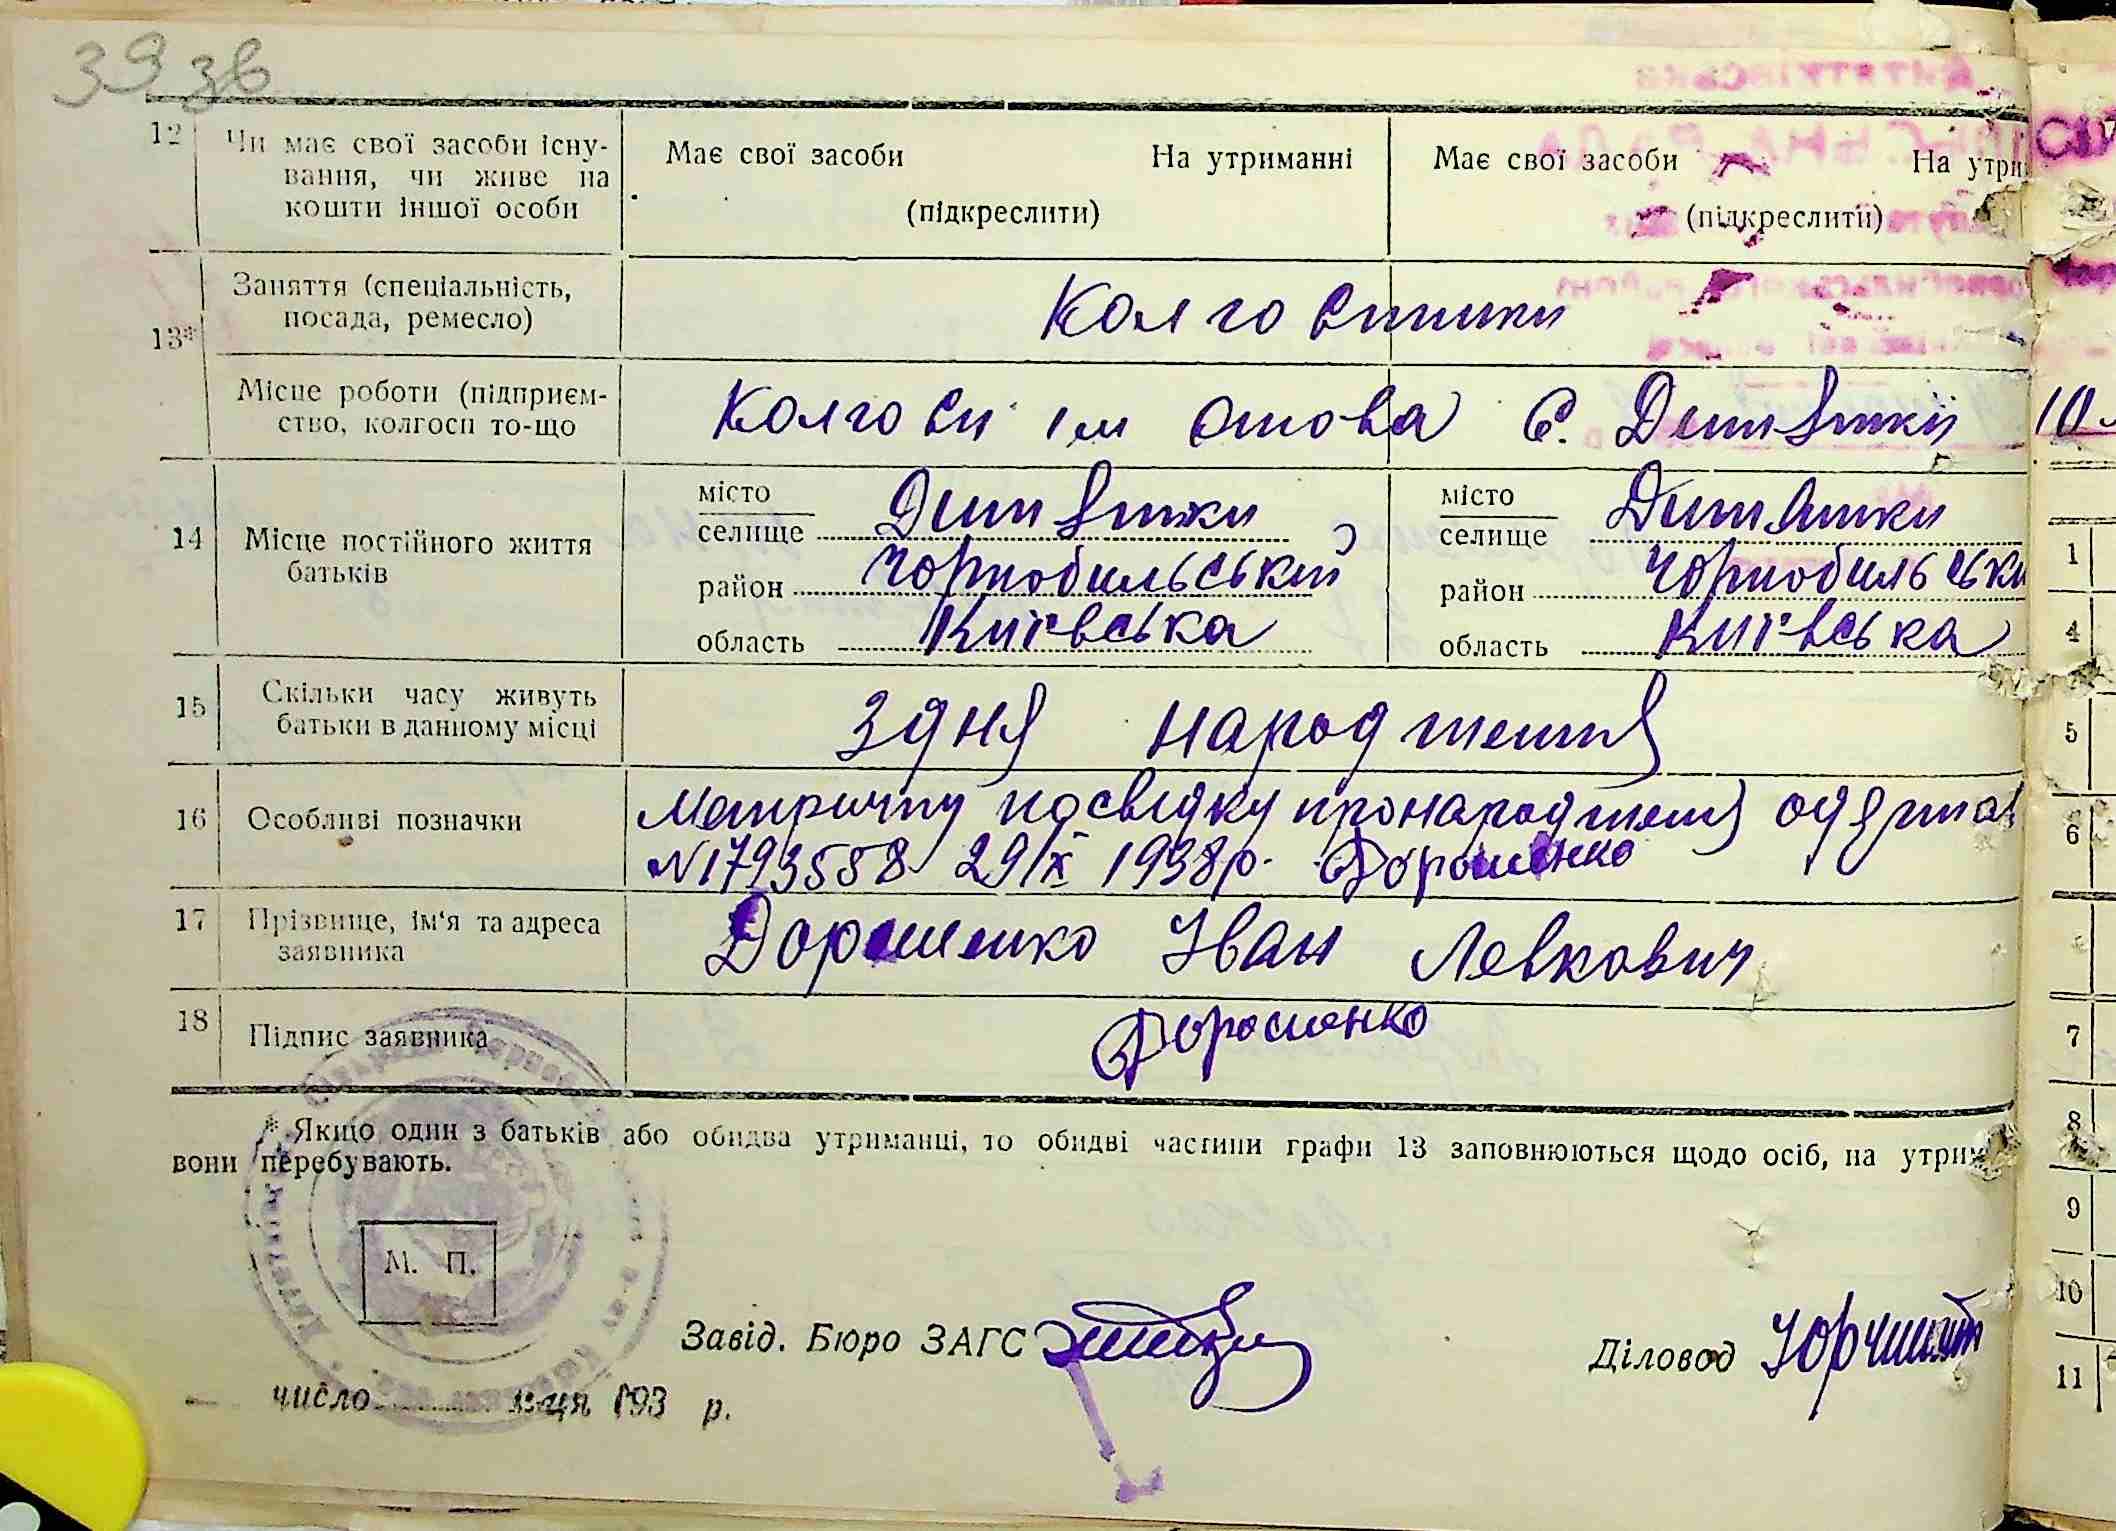 39 зв
12 Чи має свої засоби існу-
вання, чи живе на
кошти іншої особи
Має свої засоби На утриманні
(підкреслити)
Має свої засоби На утри
(підкреслити)
13* Заняття (спеціальність,
посада, ремесло)
Колгоспники
Місце роботи (підприєм-
ство, колгосп то-що
Колгосп ім С. Дитятки
14 Місце постійного життя
батьків
місто
селище Дитятки
район Чорнобильський
область Київська
місто
селище Дитятки
район Чорнобильськи
область Київська
15 Скільки часу живуть
батьки в данному місці
З дня народження
16 Особливі позначки
Метричну посвідку про народження одержав
N 1793588 29/IX 1938 р. Дорошенко
17 Прізвище, ім'я та адреса
заявника
Дорошенко Іван Левкович
18 Підпис заявника
Дорошенко
* Якщо один з батьків або обидва утриманці, то обидві частини графи 13 заповнюються щодо осіб, на утрим
вони перебувають.
М. П.
Завід. Бюро ЗАГС
Діловод
число м-ця 193 р.
10
1
4
5
6
7
8
9
10
11